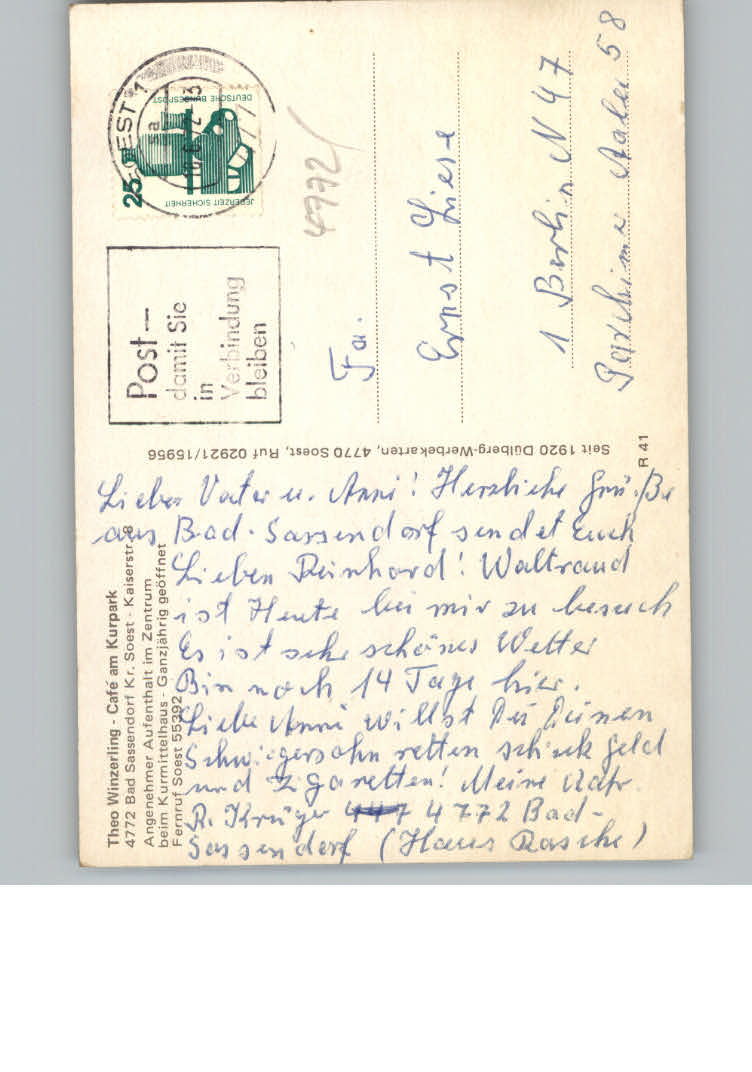 Lieber Vater u. Anni! Herzliche Grüße
aus Bad-Sassendorf sendet Euch
Lieben Reinhard! Waltraud
ist Heute bei mir zu besuch
Es ist sehr schönes Wetter
Bin noch 14 Tage hier.
Liebe Anni willst Du Deinen
Schwiegersohn retten schick Geld
und Zigaretten! Meine Adr.
R. Krüger 4772 Bad-
Sassendorf (Haus Rasche)
Theo Winzerling - Café am Kurpark
4772 Bad Sassendorf Kr. Soest - Kaiserstr. 8
Angenehmer Aufenthalt im Zentrum
beim Kurmittelhaus - Ganzjährig geöffnet
Fernruf Soest 55392
Seit 1920 Dülberg-Werbekarten, 4770 Soest, Ruf 02921/15956
R 41
Post—
damit Sie
in
Verbindung
bleiben
SOEST 1
sa
25
DEUTSCHE BUNDESPOST
JEDERZEIT SICHERHEIT
4772
Fa.
Ernst Liese
1 Berlin N 47
Parchimer Allee 58